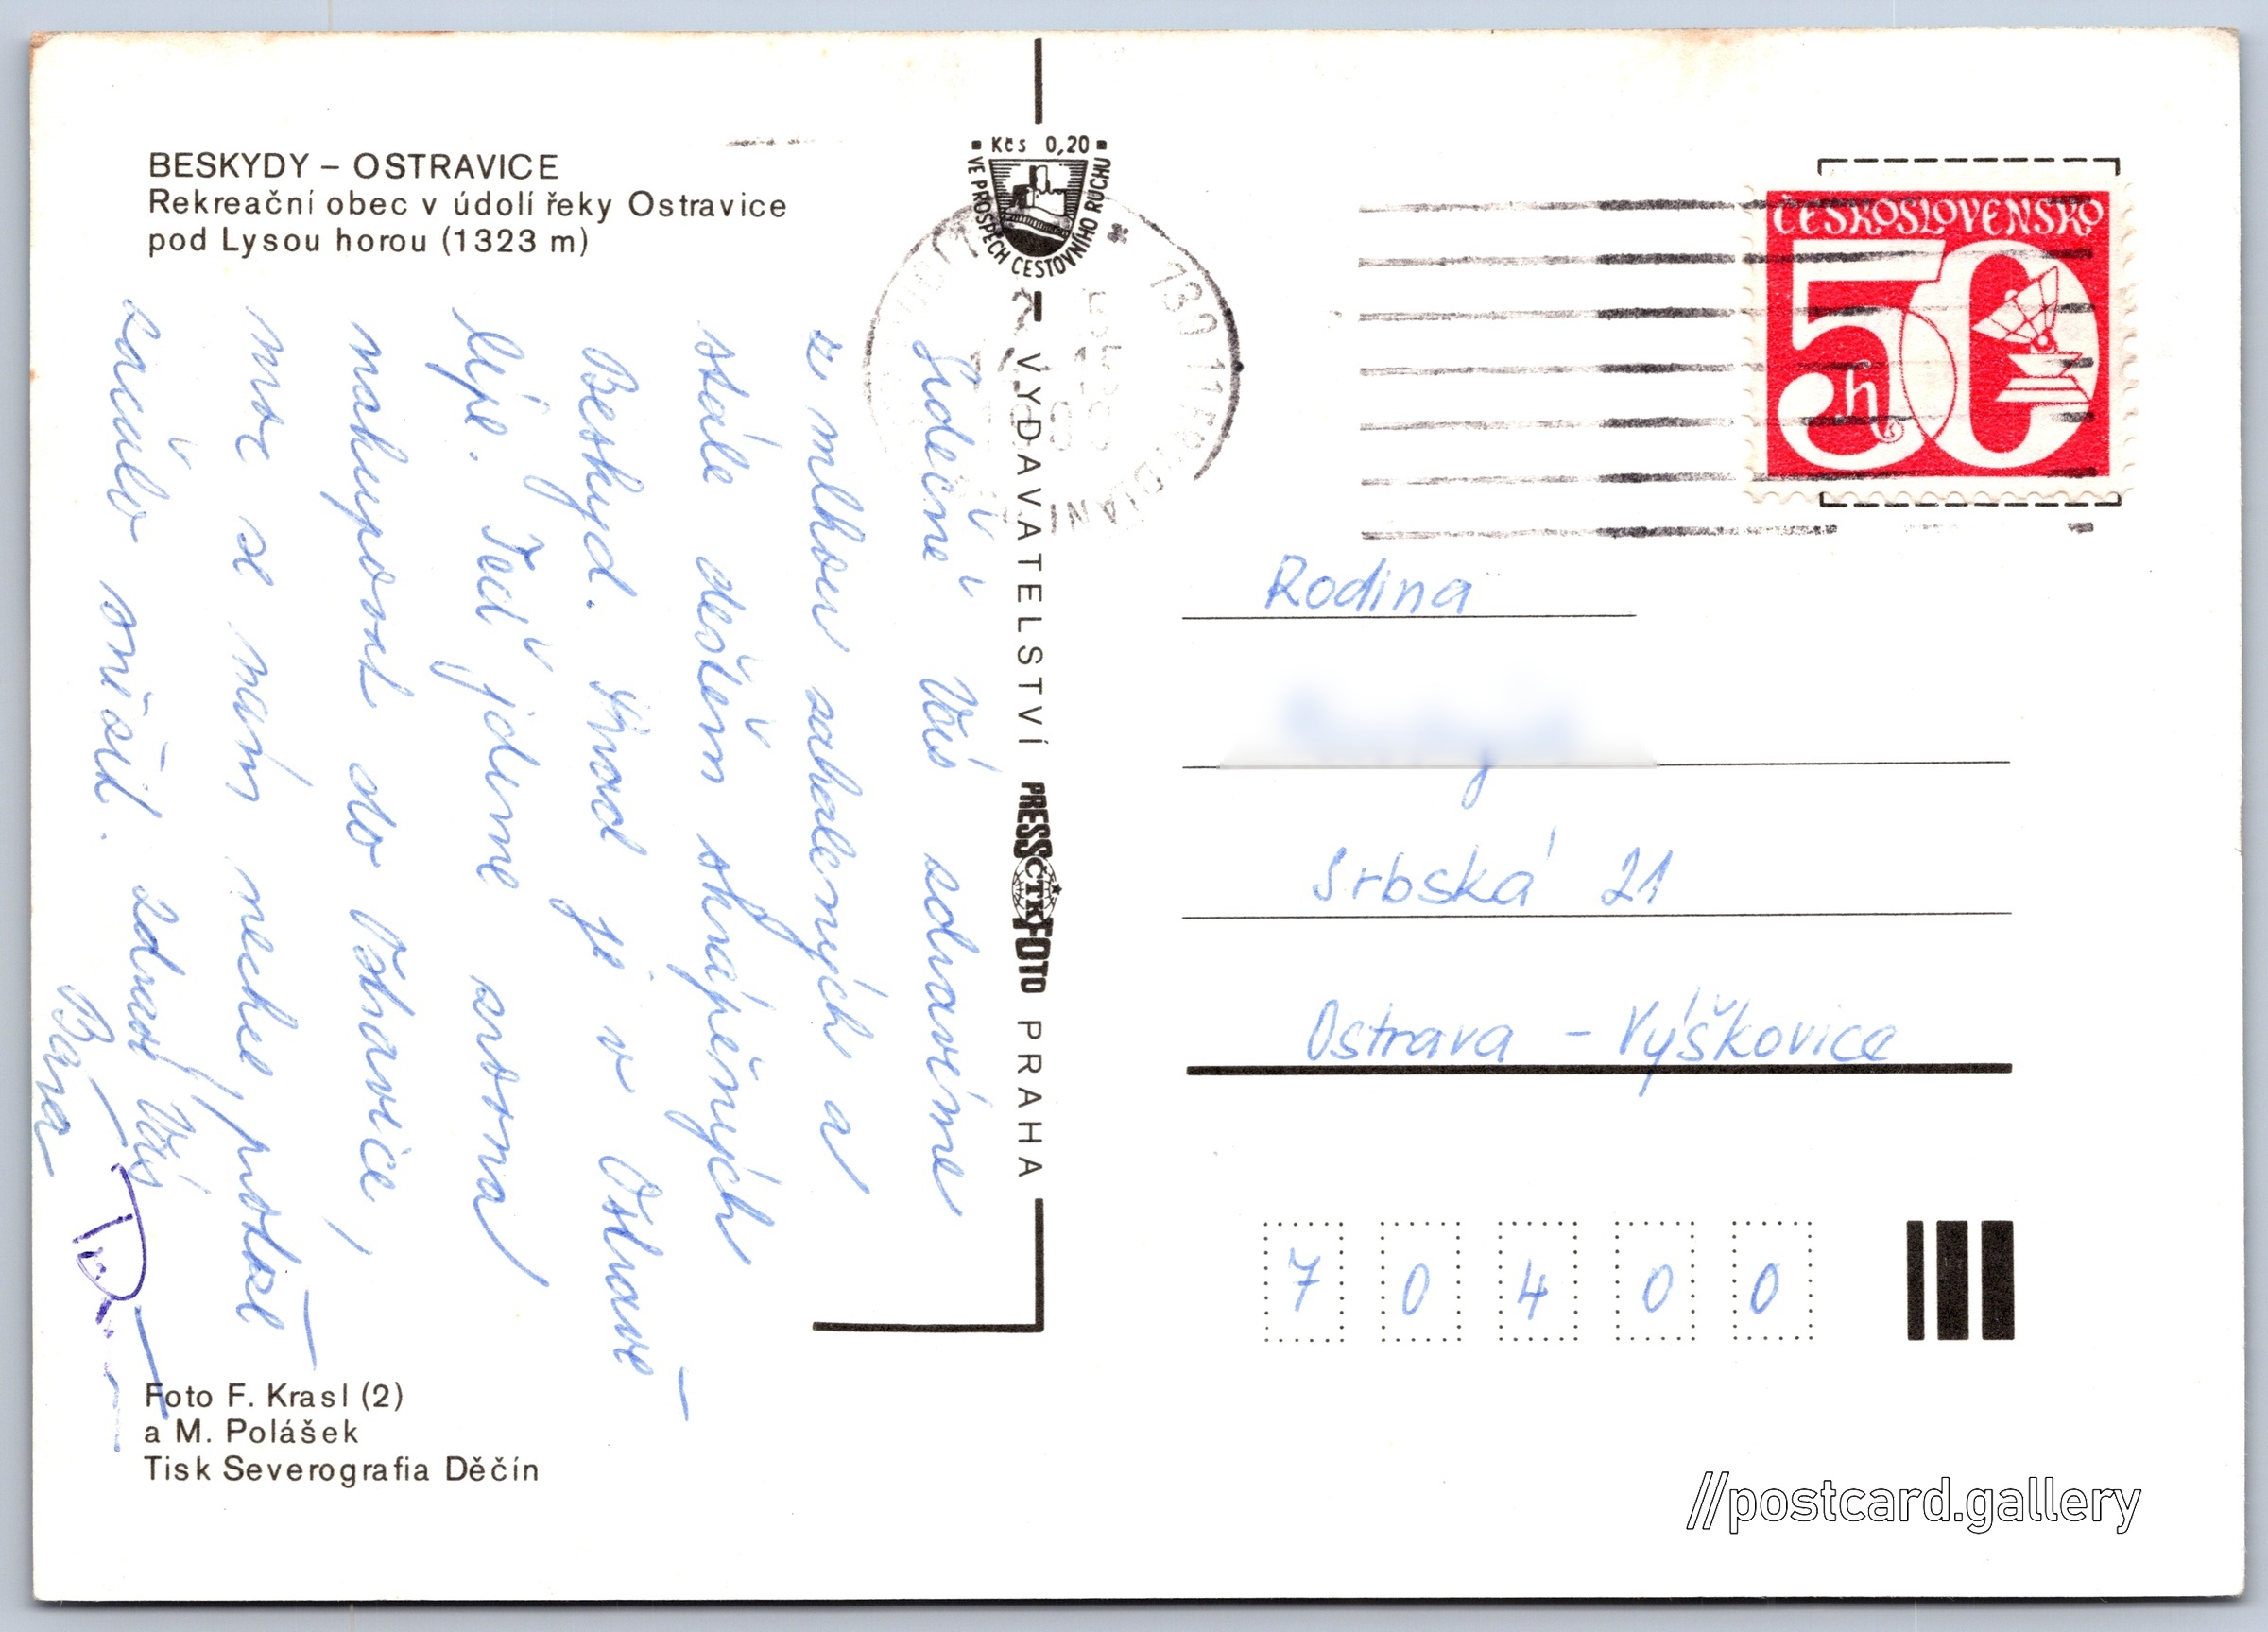 BESKYDY – OSTRAVICE
Rekreační obec v údolí řeky Ostravice
pod Lysou horou (1323 m)
Srdečně Vás zdravíme
z mlhou zahalených a
stále deštěm skrápěných
Beskyd. Snad je v Ostravě
lépe. Teď jdeme zrovna
nakupovat do Ostravice,
moc se nám nechce, protože
začalo sněžit. Zdraví Vás
Bára
Foto F. Krasl (2)
a M. Polášek
Tisk Severografia Děčín
Kčs 0,20
VE PROSPĚCH CESTOVNÍHO RUCHU
VYDAVATELSTVÍ PRESSFOTO PRAHA
ČTK
739 11
ČESKOSLOVENSKO
50 h
Rodina
Srbská 21
Ostrava – Výškovice
7 0 4 0 0
//postcard.gallery